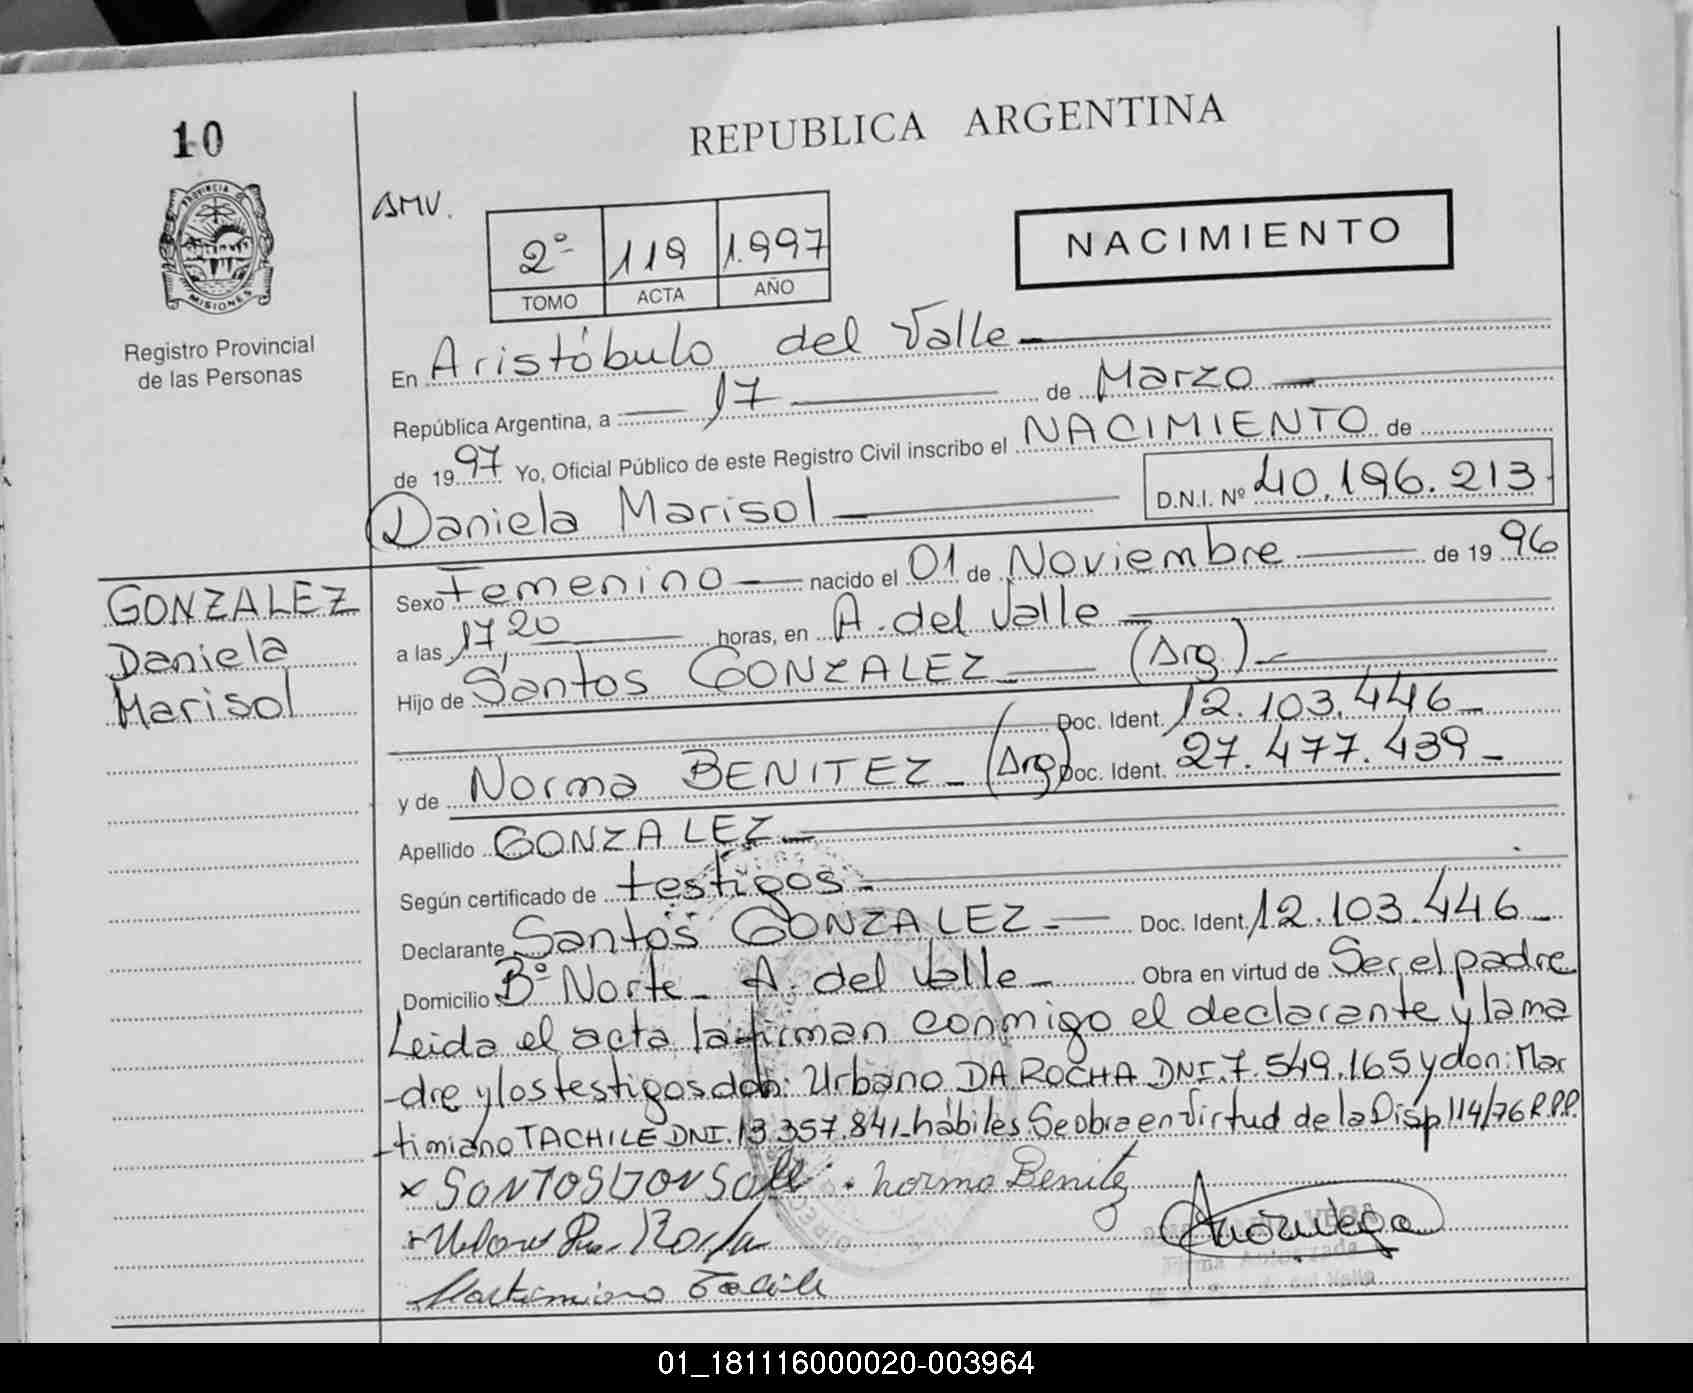 10
REPUBLICA ARGENTINA
PROVINCIA DE
MISIONES
AMV.
2º 119 1.997
TOMO ACTA AÑO
NACIMIENTO
Registro Provincial
de las Personas
En Aristóbulo del Valle
República Argentina, a 17 de Marzo
de 1997 Yo, Oficial Público de este Registro Civil inscribo el NACIMIENTO de
Daniela Marisol D.N.I. Nº 40.196.213
GONZALEZ
Daniela
Marisol
Sexo Femenino nacido el 01 de Noviembre de 1996
a las 17,20 horas, en A. del Valle
Hijo de Santos GONZALEZ (Arg.)
Doc. Ident. 12.103.446
y de Norma BENITEZ (Arg) Doc. Ident. 27.477.439
Apellido GONZALEZ
Según certificado de testigos
Declarante Santos GONZALEZ Doc. Ident. 12.103.446
Domicilio Bº Norte A. del Valle Obra en virtud de Ser el padre
Leida el acta, la firman conmigo el declarante y la ma
dre y los testigos don: Urbano DA ROCHA DNI. 7.549.165 y don: Mar
timiano TACHILE DNI. 13.357.841 hábiles. Se obra en virtud de la Disp 114/76 R.P.P.
x SANTOS norma Benitez
01_181116000020-003964